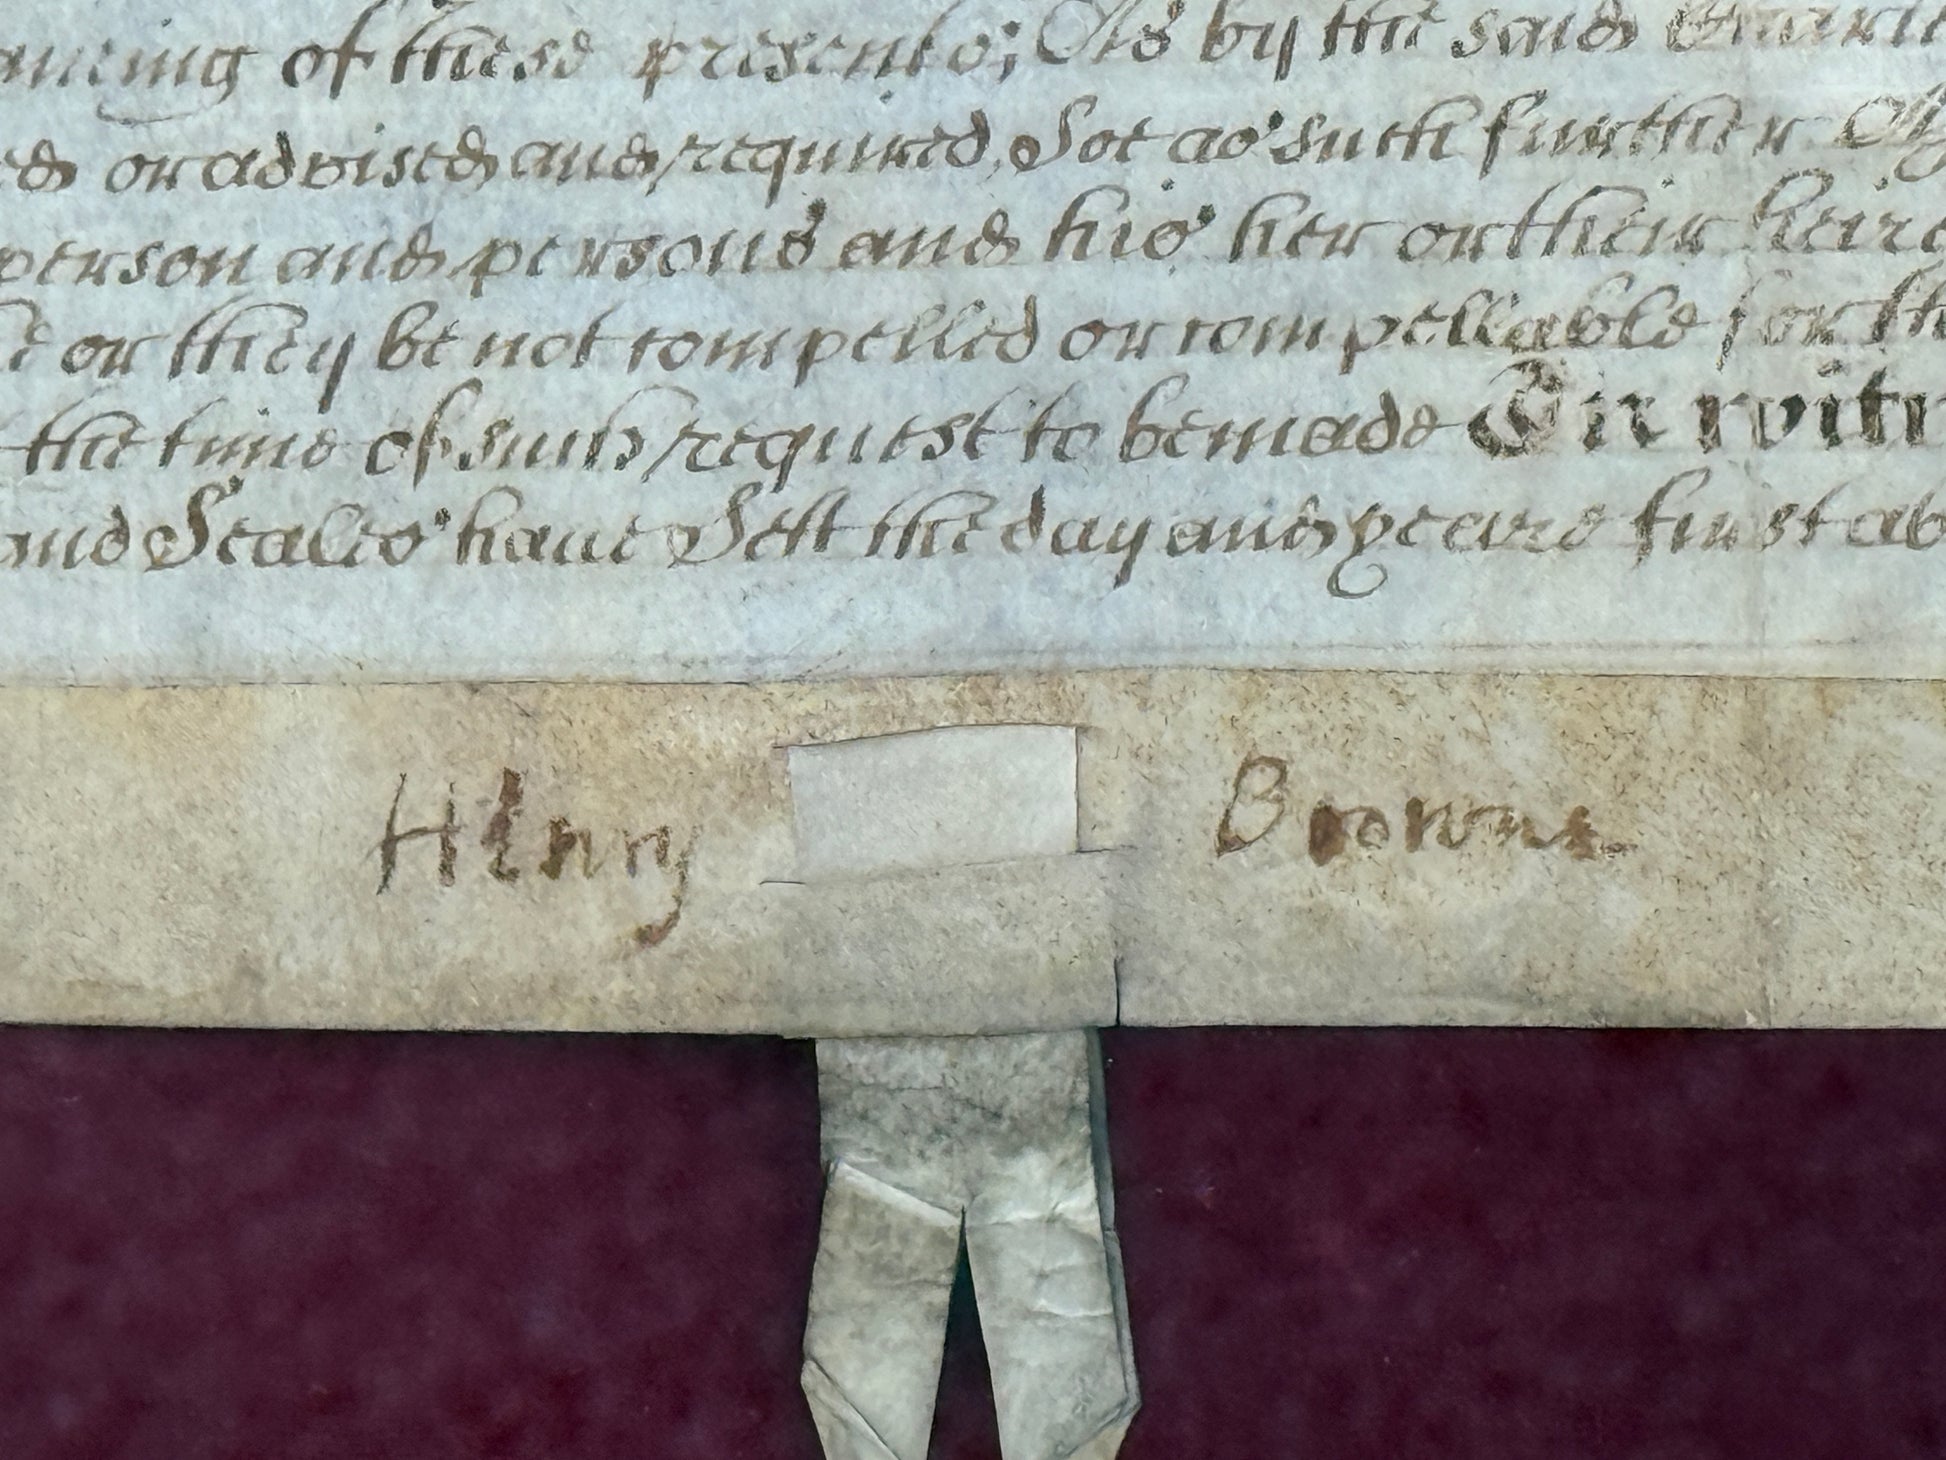 of these presents; As by the said
or advised and required, Soe as such further
person and persons and his her or their heires
or they be not compelled or compellable for
the time of such request to be made In witn
and Seales haue Sett the day and yeare first ab
Henry Browne